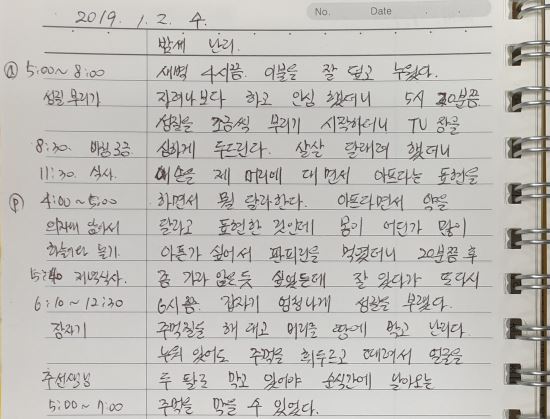 2019. 1. 2. 수.
No. Date
밤새 난리.
A 5:00~8:00 새벽 4시쯤. 이불을 잘 덮고 누웠다.
성질 부리기 자려나보다 하고 안심 했더니 5시 20분쯤
성질을 조금씩 부리기 시작하더니 TV 장을
8:30. 아침 심하게 두드린다. 살살 달래려 했더니
11:30. 식사. 손을 제 머리에 대면서 아프다는 표현을
P 4:00~5:00 하면서 뭘 달라한다. 아프다면서 약을
의자에 앉아서 달라고 표현한 것인데 몸이 어딘가 많이
놀기 아픈가 싶어서 판피린을 먹였더니 20분쯤 후
저녁식사. 좀 가라앉은듯 싶었는데 잘 있다가 또다시
6:10~12:30 6시쯤. 갑자기 엄청나게 성질을 부렸다.
잠자기 주먹질을 해 대고 머리를 땅에 박고 난리다.
누워 있어도 주먹을 휘두르고 때려서 얼굴을
두 팔로 막고 있어야 순식간에 날아오는
5:00~7:00 주먹을 막을 수 있었다.